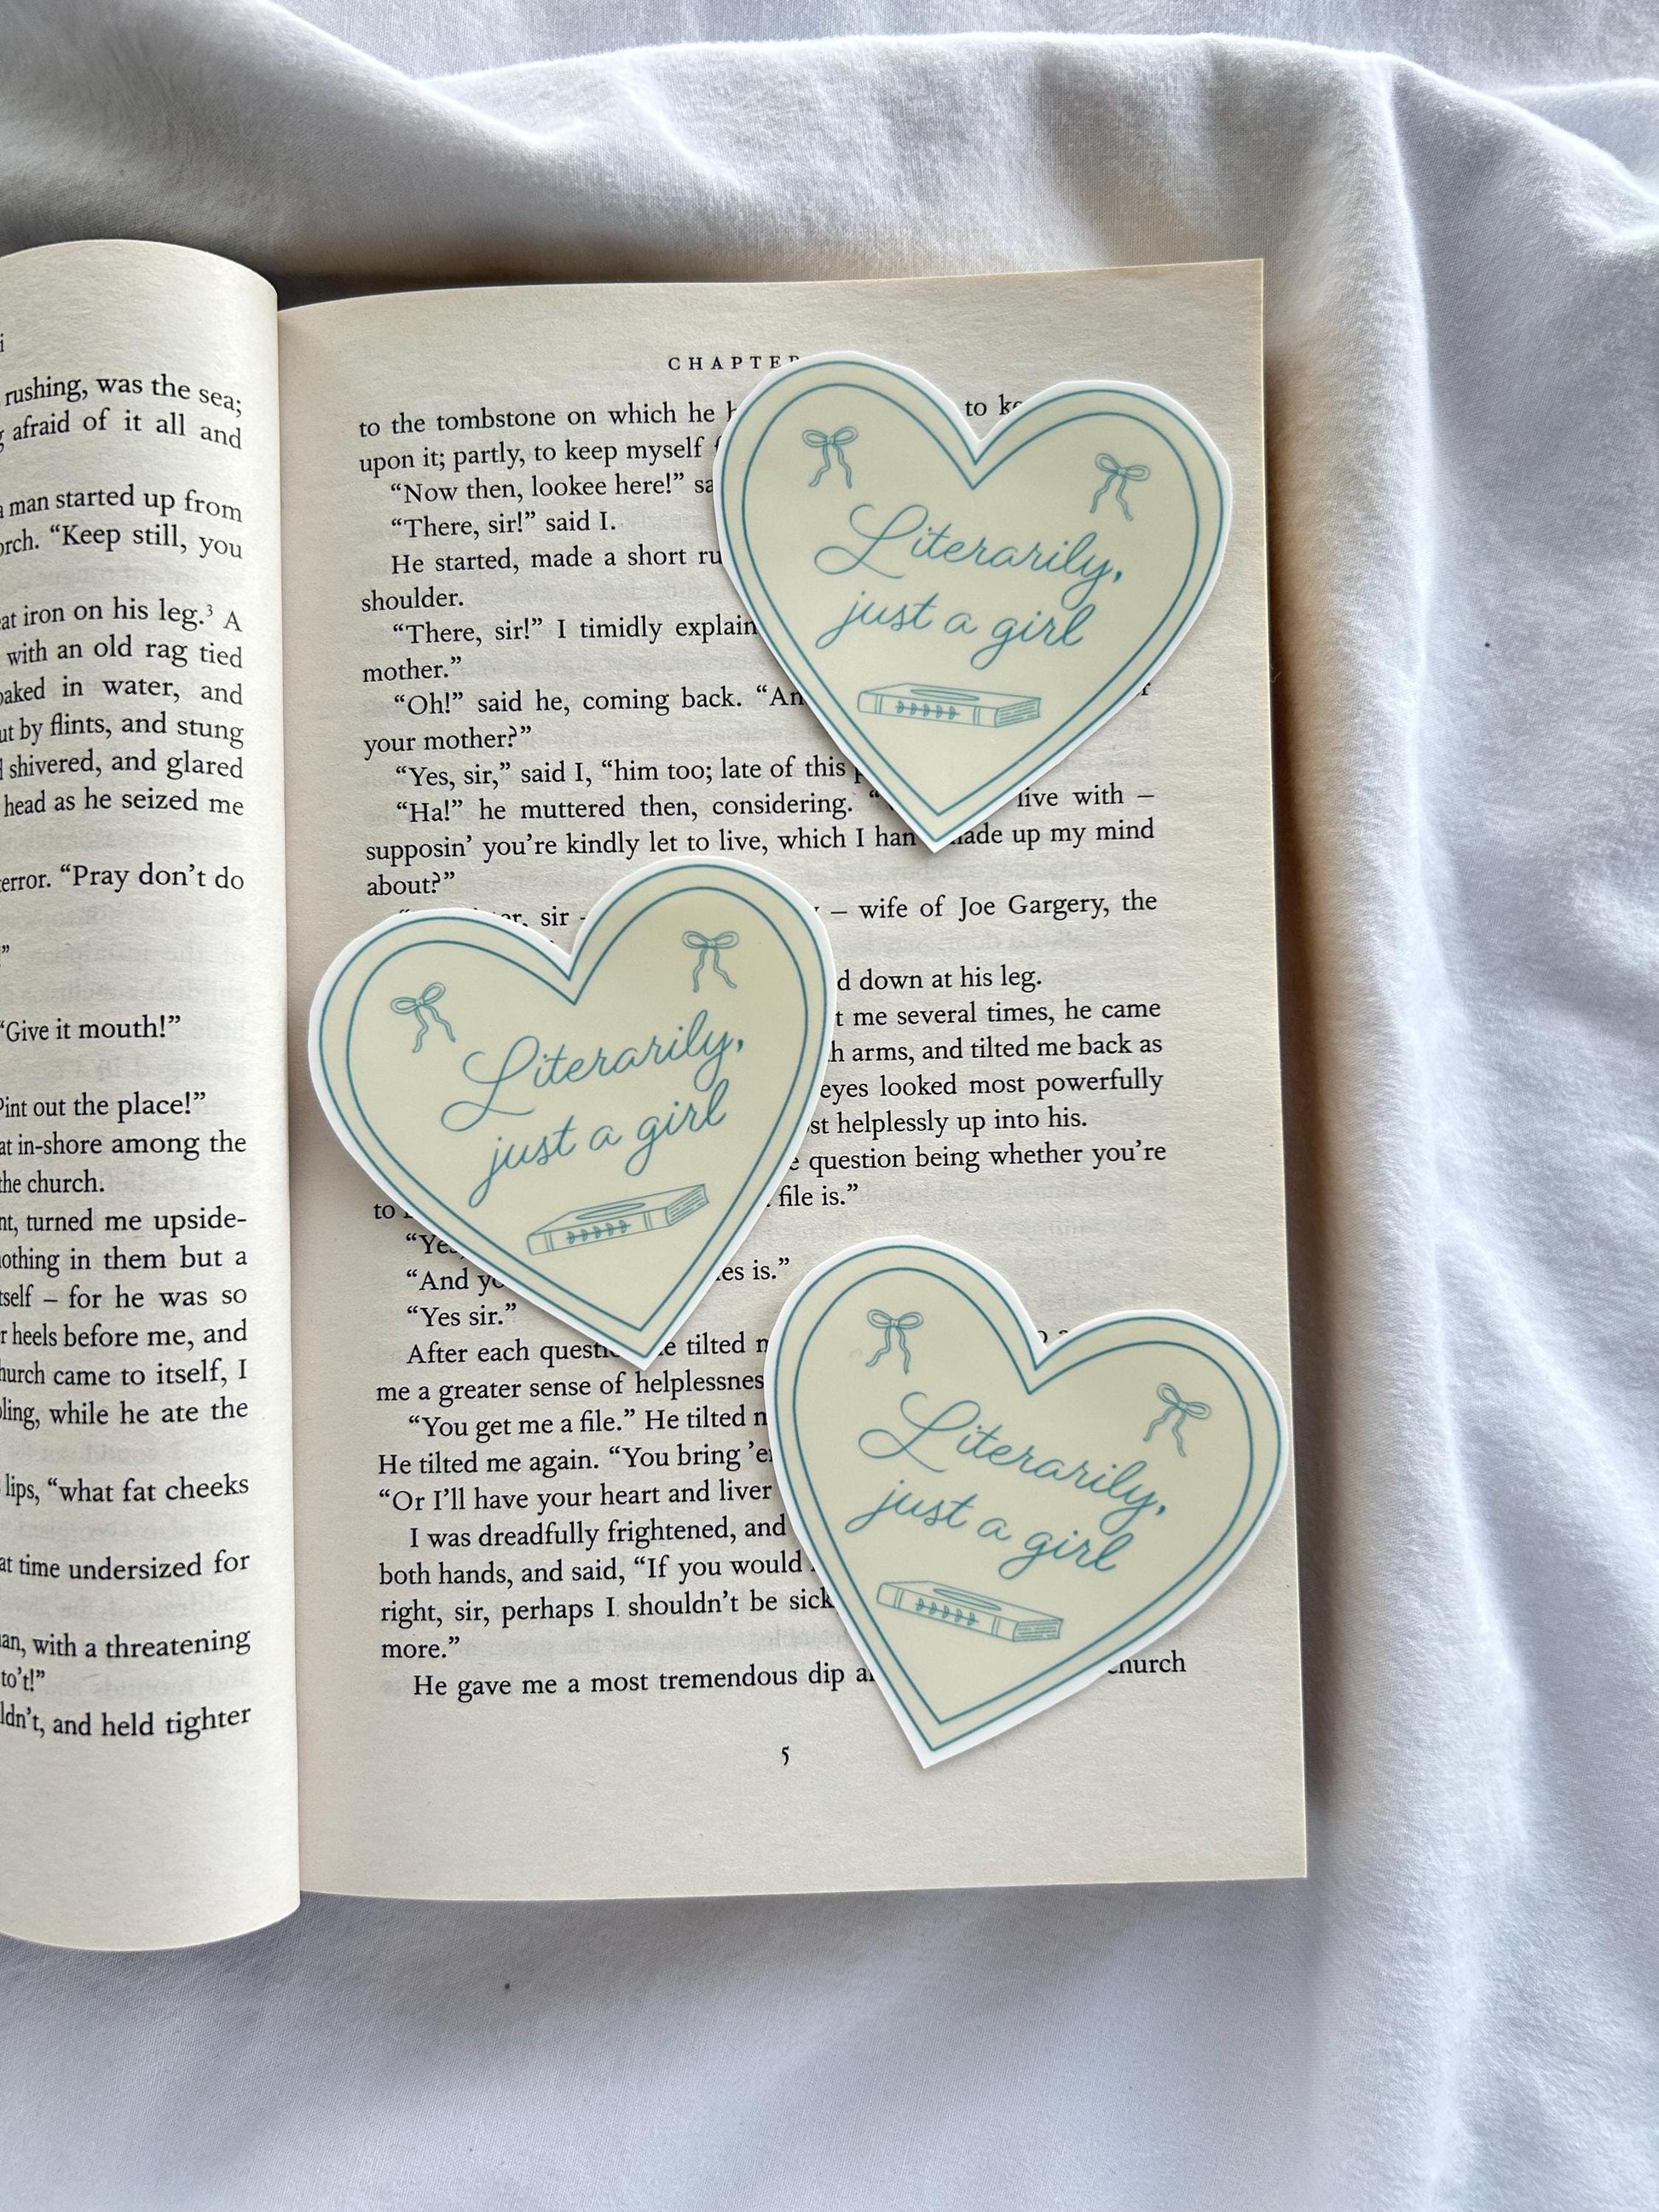 i
rushing, was the sea;
afraid of it all and
man started up from
"Keep still, you
iron on his leg.³ A
with an old rag tied
in water, and
by flints, and stung
shivered, and glared
head as he seized me
"Pray don't do
"
"Give it mouth!"
out the place!"
in-shore among the
the church.
turned me upside-
in them but a
– for he was so
heels before me, and
came to itself, I
while he ate the
lips, "what fat cheeks
time undersized for
with a threatening
to't!"
and held tighter
CHAPTER
to the tombstone on which he to
upon it; partly, to keep myself
"Now then, lookee here!"
"There, sir!" said I.
He started, made a short
shoulder.
"There, sir!" I timidly
mother."
"Oh!" said he, coming back.
your mother?"
"Yes, sir," said I, "him too; late of this
"Ha!" he muttered then, considering. live with –
supposin' you're kindly let to live, which I han't made up my mind
about?"
sir – wife of Joe Gargery, the
down at his leg.
me several times, he came
arms, and tilted me back as
eyes looked most powerfully
helplessly up into his.
question being whether you're
to file is."
"And is."
"Yes sir."
After each tilted
me a greater sense of
"You get me a file." He tilted
He tilted me again. "You bring
"Or I'll have your heart and liver
I was dreadfully frightened, and
both hands, and said, "If you would
right, sir, perhaps I shouldn't be
more."
He gave me a most tremendous dip church
5
Literarily,
just a girl
Literarily,
just a girl
Literarily,
just a girl